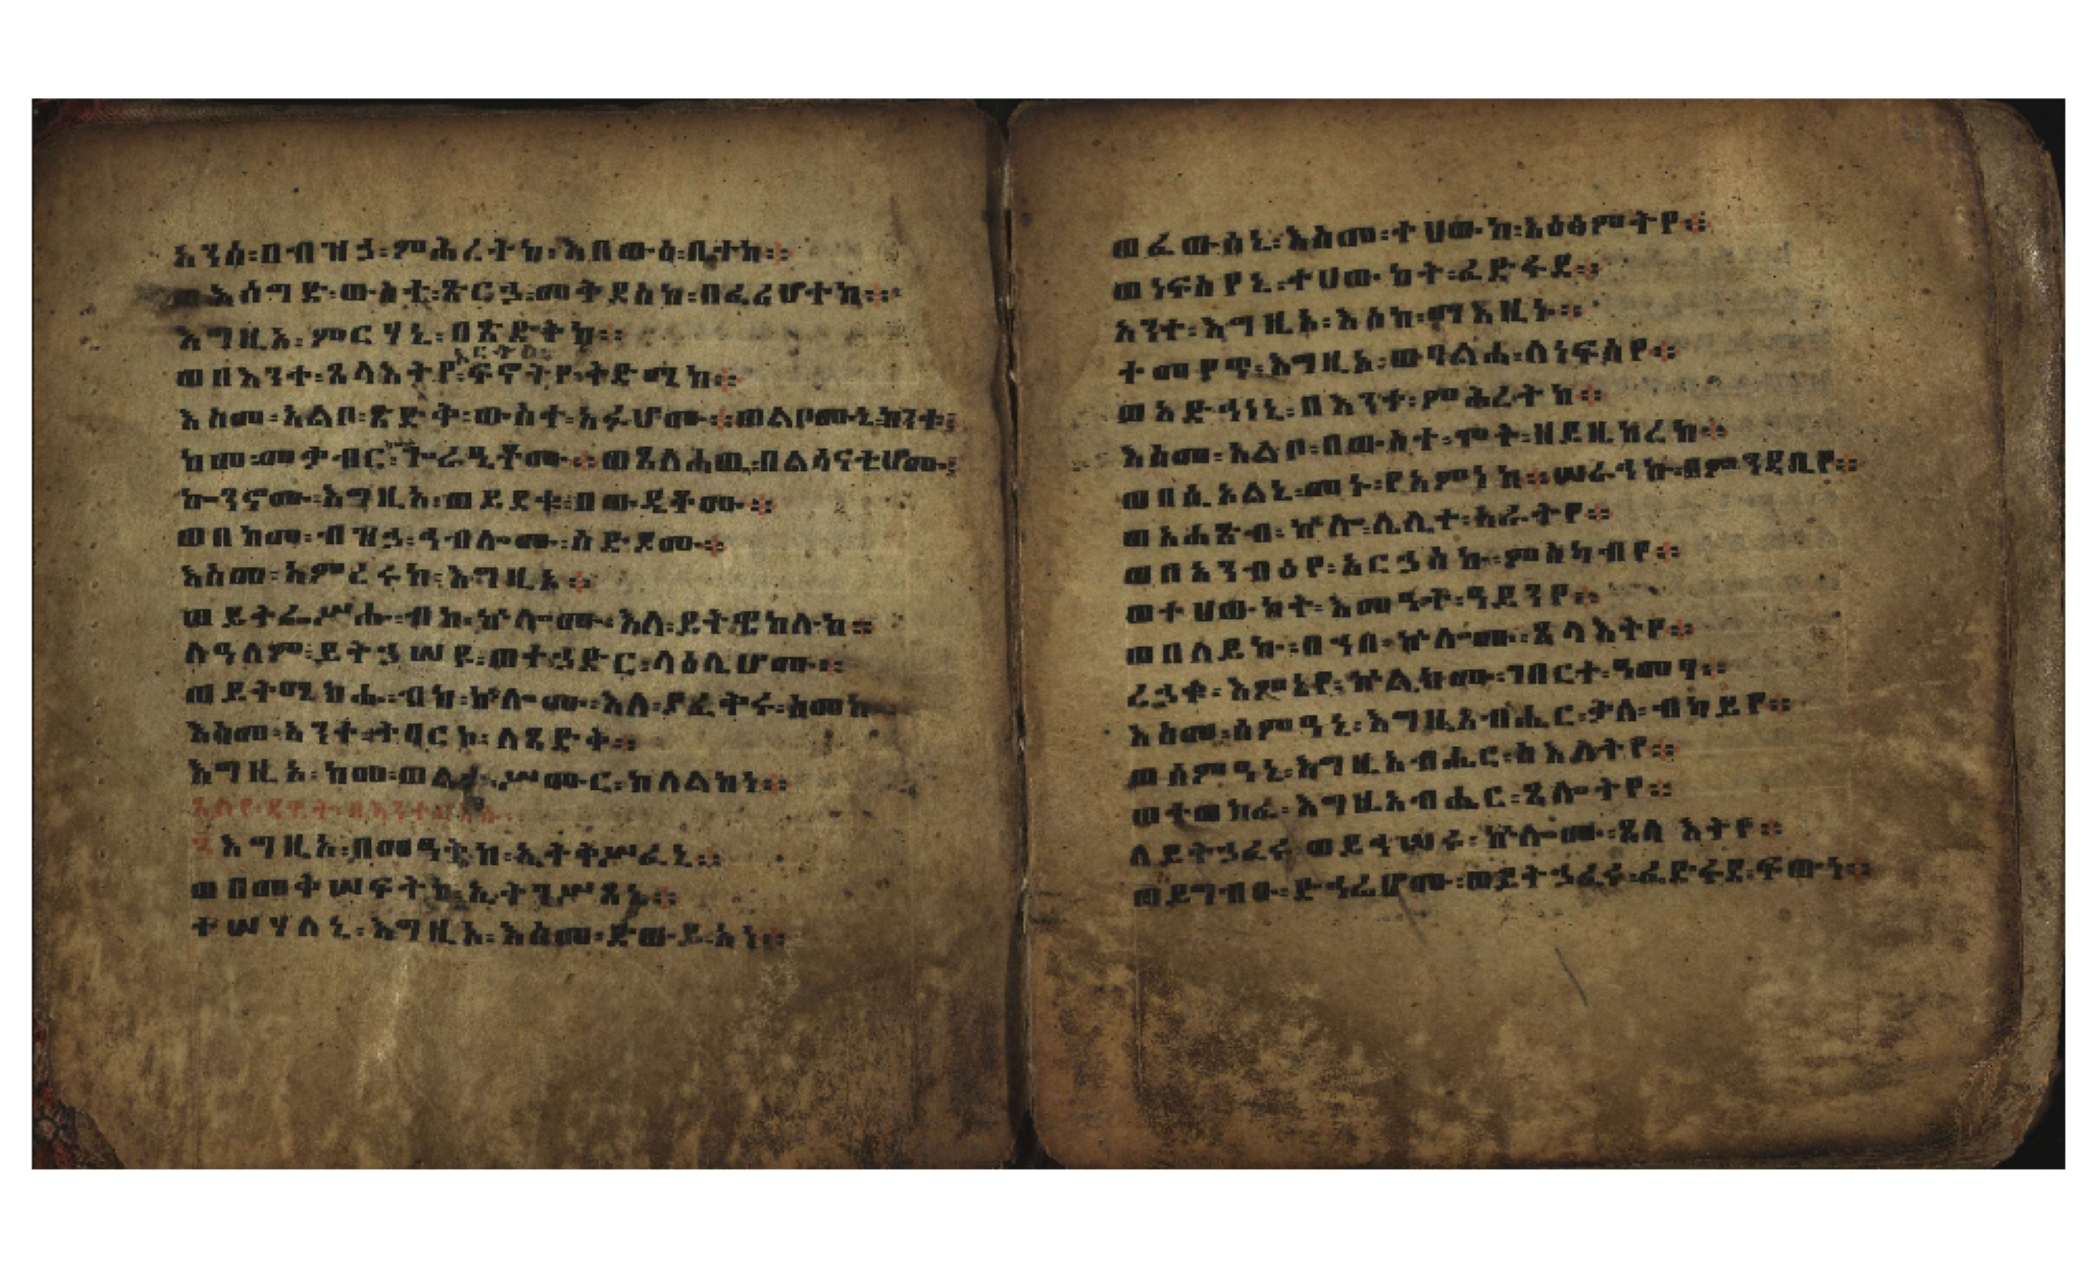 አንሰ፡በብዝኃ፡ምሕረትከ፡እበውዕ፡ቤተከ።
ወእሰግድ፡ውስተ፡ጽርሓ፡መቅደስከ፡በፈሪሆተከ።
እግዚአ፡ምርሃኒ፡በጽድቅከ።
አርትዕ፡
ወበእንተ፡ጸላእትየ፡ፍኖትየ፡ቅድሜከ።
እስመ፡አልቦ፡ጽድቅ፡ውስተ፡አፉሆሙ።ወልቦሙኒ፡ከንቱ፤
ከመ፡መቃብር፡ጕራዒቶሙ።ወጸለሐዉ፡በልሳናቲሆሙ፤
ኰንኖሙ፡እግዚአ፡ወይደቁ፡በውዴቶሙ።
ወበከመ፡ብዝኃ፡ኃብሎሙ፡ስድዶሙ።
እስመ፡አምረሩከ፡እግዚአ።
ወይትፌሥሑ፡ብከ፡ኵሎሙ፡እለ፡ይትዌከሉ፡ከ።
ለዓለም፡ይትኃሠዩ፡ወተኃድር፡ላዕሌሆሙ።
ወይትሜክሑ፡ብከ፡ኵሎሙ፡እለ፡ያፈቅሩ፡ስመከ።
እስመ፡አንተ፡ትባርኮ፡ለጻድቅ።
እግዚአ፡ከመ፡ወልታ፡ሥሙር፡ከለልከነ።
፮እግዚአ፡በመዓትከ፡ኢትቅሥፈኒ።
ወበመቅሠፍትከ፡ኢትገሥጸኒ።
ተሠሃለኒ፡እግዚአ፡እስመ፡ድውይ፡አነ።
ወፈውሰኒ፡እስመ፡ተሀውከ፡አዕፅምትየ።
ወነፍስየኒ፡ተሀውከት፡ፈድፋደ።
አንተ፡እግዚአ፡እስከ፡ማእዜኑ።
ተመየጥ፡እግዚአ፡ወባልሐ፡ለነፍስየ።
ወአድኅነኒ፡በእንተ፡ምሕረትከ።
እስመ፡አልቦ፡በውስተ፡ሞት፡ዘይዜከረከ።
ወበሲኦልኒ፡መኑ፡የአምነከ።ሠራኅኩ፡በምንዳቤየ።
ወአሐፅብ፡ኵሎ፡ሌሊተ፡አራትየ።
ወበአንብዕየ፡አርኃስኩ፡ምስካብየ።
ወተሀውከት፡እመዓት፡ዓይንየ።
ወበለይኩ፡በኀበ፡ኵሎሙ፡ጸላእትየ።
ረኃቁ፡እምኔየ፡ኵልክሙ፡ገበርተ፡ዓመፃ።
እስመ፡ሰምዓኒ፡እግዚአብሔር፡ቃለ፡ብካይየ።
ወሰምዓኒ፡እግዚአብሔር፡ስእለትየ።
ወተወክፈ፡እግዚአብሔር፡ጸሎትየ።
ለይትኃፈሩ ወይኅሠሩ፡ኵሎሙ፡ጸላእትየ።
ወይግብኡ፡ድኅሬሆሙ፡ወይትኃፈሩ፡ፈድፋደ፡ፍጡነ።